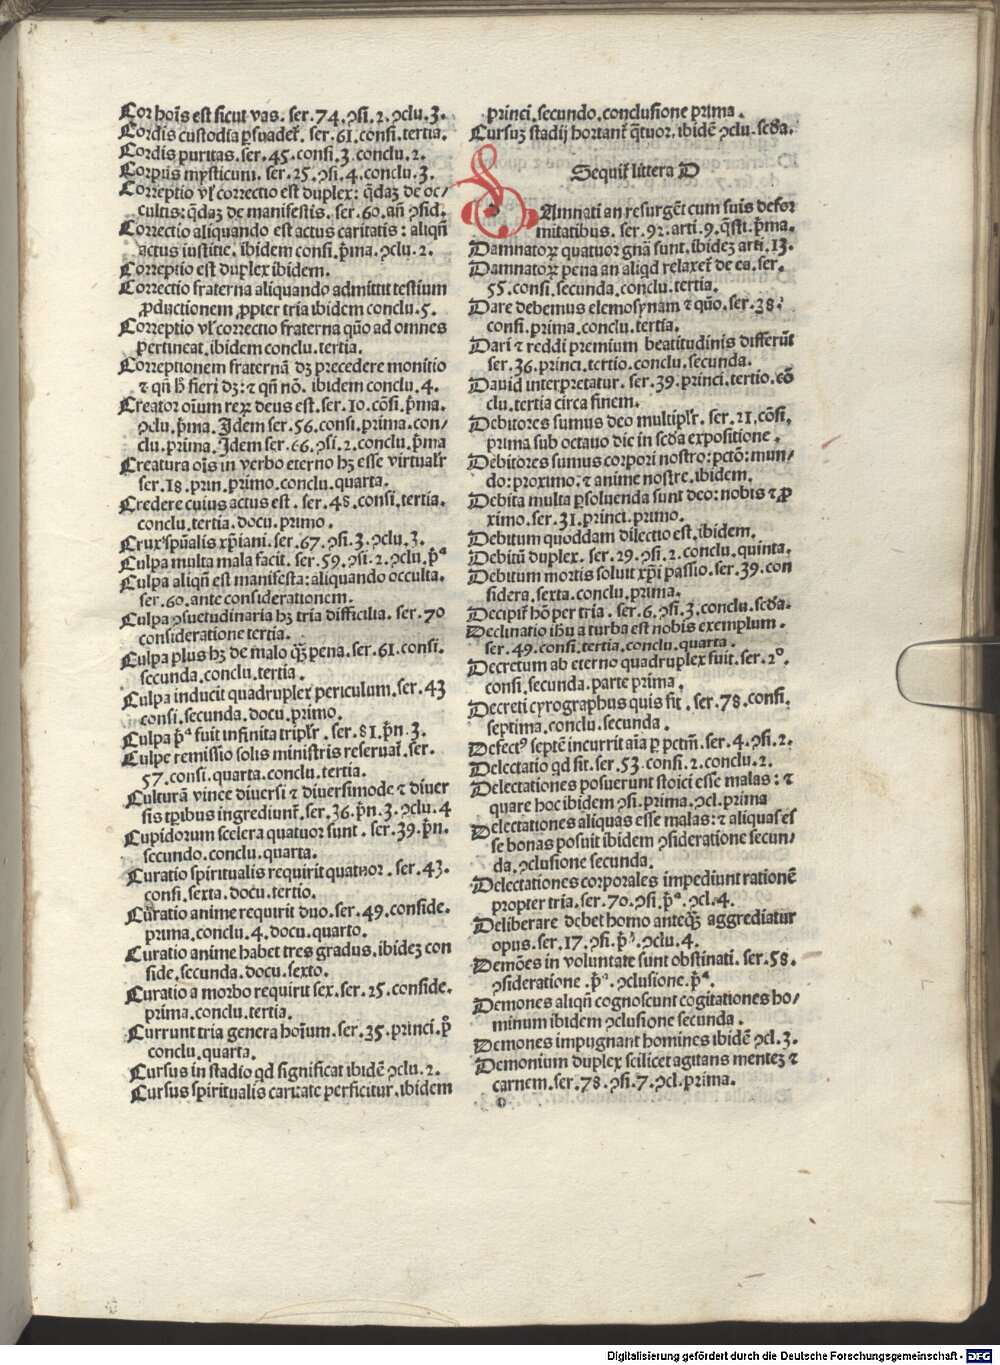 Cor hoĩs est sicut vas. ser. 74. ꝯsi. 2. ꝯclu. 3.
Cordis custodia ꝑsuadet᷑. ser. 61. consi. tertia.
Cordis puritas. ser. 45. consi. 3. conclu. 2.
Corpus mysticum. ser. 25. ꝯsi. 4. conclu. 3.
Correptio vl᷑ correctio est duplex: q̃daꝫ de oc/
cultis: q̃daꝫ de manifestis. ser. 60. añ ꝯsid.
Correctio aliquando est actus caritatis: aliqñ
actus iustitie. ibidem consi. p̃ma. ꝯclu. 2.
Correptio est duplex ibidem.
Correctio fraterna aliquando admittit testium
ꝓductionem ꝓpter tria ibidem conclu. 5.
Correptio vl᷑ correctio fraterna quo ad omnes
pertineat. ibidem conclu. tertia.
Correptionem fraternã dꝫ precedere monitio
⁊ qñ hꝰ fieri dꝫ: ⁊ qñ nõ. ibidem conclu. 4.
Creator oĩum reꝝ deus est. ser. 10. cõsi. p̃ma.
ꝯclu. p̃ma. Idem ser. 56. consi. prima. con/
clu. prima. Idem ser. 66. ꝯsi. 2. conclu. p̃ma
Creatura oĩs in verbo eterno hꝫ esse virtual᷑r
ser. 18. prin. primo. conclu. quarta.
Credere cuius actus est. ser. 48. consi. tertia.
conclu. tertia. docu. primo.
Crux spũalis xp̃iani. ser. 67. ꝯsi. 3. ꝯclu. 3.
Culpa multa mala facit. ser. 59. ꝯsi. 2. ꝯclu. p̃ᵃ
Culpa aliqñ est manifesta: aliquando occulta.
ser. 60. ante considerationem.
Culpa ꝯsuetudinaria hꝫ tria difficilia. ser. 70
consideratione tertia.
Culpa plus hꝫ de malo qꝫ̃ pena. ser. 61. consi.
secunda. conclu. tertia.
Culpa inducit quadruplex periculum. ser. 43
consi. secunda. docu. primo.
Culpa p̃ᵃ fuit infinita tripl᷑r. ser. 81. p̃n. 3.
Culpe remissio solis ministris reseruat᷑. ser.
57. consi. quarta. conclu. tertia.
Culturã vince diuersi ⁊ diuersimode ⁊ diuer
sis tꝑibus ingrediunt᷑. ser. 36. p̃n. 3. ꝯclu. 4
Cupidorum scelera quatuor sunt. ser. 39. p̃n.
secundo. conclu. quarta.
Curatio spiritualis requirit quatuor. ser. 43.
consi. sexta. docu. tertio.
Curatio anime requirit duo. ser. 49. conside.
prima. conclu. 4. docu. quarto.
Curatio anime habet tres gradus. ibideꝫ con
side. secunda. docu. sexto.
Curatio a morbo requirit sex. ser. 25. conside.
prima. conclu. tertia.
Currunt tria genera hoĩum. ser. 35. princi. p̊
conclu. quarta.
Cursus in stadio qd significat ibidẽ ꝯclu. 2.
Cursus spiritualis caritate perficitur. ibidem
princi. secundo. conclusione prima.
Cursuꝫ stadij hortant᷑ q̃tuor. ibidẽ ꝯclu. scd̃a.
Sequit᷑ littera D
DAmnati an resurgẽt cum suis defor
mitatibus. ser. 92. arti. 9. q̃sti. p̃ma.
Damnatoꝝ quatuor gñã sunt. ibideꝫ arti. 13.
Damnatoꝝ pena an aliqd relaxet᷑ de ea. ser.
55. consi. secunda. conclu. tertia.
Dare debemus elemosynam ⁊ quo. ser. 38.
consi. prima. conclu. tertia.
Dari ⁊ reddi premium beatitudinis differũt
ser. 36. princi. tertio. conclu. secunda.
Dauid interpretatur. ser. 39. princi. tertio. cõ
clu. tertia circa finem.
Debitores sumus deo multipl᷑r. ser. 21. cõsi.
prima sub octauo die in scd̃a expositione.
Debitores sumus corpori nostro: pctõ: mun/
do: proximo: ⁊ anime nostre. ibidem.
Debita multa ꝑsoluenda sunt deo: nobis ⁊ ꝓ
ximo. ser. 31. princi. primo.
Debitum quoddam dilectio est. ibidem.
Debitũ duplex. ser. 29. ꝯsi. 2. conclu. quinta.
Debitum mortis soluit xp̃i passio. ser. 39. con
sidera. sexta. conclu. prima.
Decipit᷑ hõ per tria. ser. 6. ꝯsi. 3. conclu. scd̃a.
Declinatio ihũ a turba est nobis exemplum.
ser. 49. consi. tertia. conclu. quarta.
Decretum ab eterno quadruplex fuit. ser. 2º.
consi. secunda. parte prima.
Decreti cyrographus quis sit. ser. 78. consi.
septima. conclu. secunda.
Defectꝰ septẽ incurrit aĩa ꝑ pctm̃. ser. 4. ꝯsi. 2.
Delectatio qd sit. ser. 53. consi. 2. conclu. 2.
Delectationes posuerunt stoici esse malas: ⁊
quare hoc ibidem ꝯsi. prima. ꝯcl. prima
Delectationes aliquas esse malas: ⁊ aliquas es
se bonas posuit ibidem ꝯsideratione secun/
da. ꝯclusione secunda.
Delectationes corporales impediunt rationẽ
propter tria. ser. 70. ꝯsi. p̃ᵃ. ꝯcl. 4.
Deliberare debet homo anteqꝫ̃ aggrediatur
opus. ser. 17. ꝯsi. p̃ᵃ. ꝯclu. 4.
Demões in voluntate sunt obstinati. ser. 58.
ꝯsideratione. p̃ᵃ. ꝯclusione. p̃ᵃ.
Demones aliqñ cognoscunt cogitationes ho/
minum ibidem ꝯclusione secunda.
Demones impugnant homines ibidẽ ꝯcl. 3.
Demonium duplex scilicet agitans menteꝫ ⁊
carnem. ser. 78. ꝯsi. 7. ꝯcl. prima.
Digitalisierung gefördert durch die Deutsche Forschungsgemeinschaft - DFG